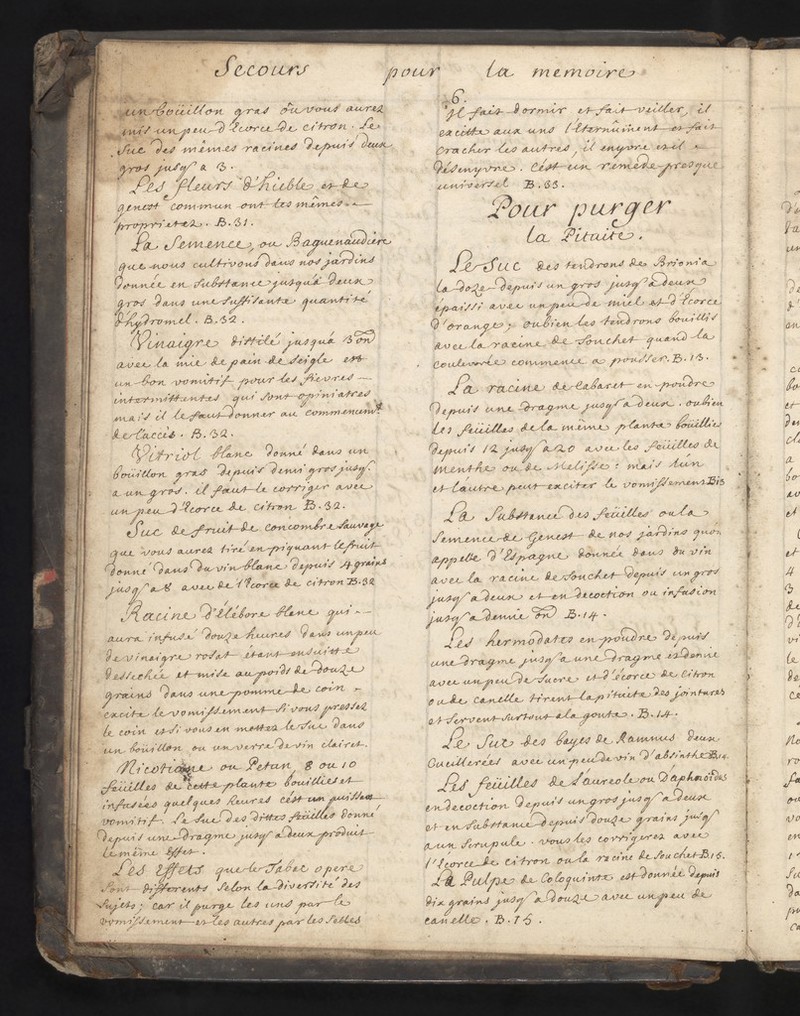 Secours pour la memoire
un boüillon gras où vous aurez
mis un peu d'Ecorce de citron. Le
Suc des mêmes racines depuis deux
gros jusq' a 3.
Les fleurs d'hieble et de
genest commun ont les mêmes
proprietez. B. 31.
La Semence, ou Baguenaudiere
que nous cultivons dans nos jardins
donnée en Substance jusqu'à deux
gros dans une suffisante quantité
d'hydromel. B. 32.
Vinaigre distilé jusquà
avec la mie de pain de Seigle est
un bon vomitif pour les fievres
intermittentes qui sont opiniatres
mais il le faut donner au commencemt
de l'accès. B. 32.
Vitriol blanc donné dans un
boüillon gras depuis demi gros jusq'
a un gros. il faut le corriger avec
un peu d'Ecorce de citron B. 32.
Suc de fruit de concombre Sauvage
que vous aurez tiré en piquant le fruit
donné dans du vin blanc depuis 4 grains
jusq' a 8 avec de l'Ecorce de citron B. 32
Racine d'élébore blanc qui
aura infusé douze heures dans un peu
de vinaigre rosat étant ensuitte
dessechée et mise au poids de douze
grains dans une pomme de coin
excite le vomissement si vous pressez
le coin et si vous en mettez le suc dans
un boüillon ou un verre de vin clairet.
Nicotiane ou Petun, 8 ou 10
feüilles de cette plante boüillies et
infusées quelques heures c'est un puissant
vomitif. Le Suc des dittes feüilles donné
depuis une dragme jusq' a deux produit
le même Effet.
Les Effets que le Tabac opere
Sont differents selon la diversité des
Sujets; car il purge les uns par le
vomissement et les autres par les Selles
6.
Il fait dormir et fait veiller, il
excitte aux uns l'éternüment et fait
cracher les autres, il enyvre et il
désenyvre. C'ést un remede presque
universel B. 33.
Pour purger
la Pituite.
Le Suc des tendrons de Brionia
la doze depuis un gros jusq' a deux
épaissi avec un peu de miel et d'Ecorce
d'orange; ou bien les tendrons boüillis
avec la racine de Souchet quand la
couleuvrée commence a pousser. B. 13.
La racine de Cabaret en poudre
depuis une dragme jusq' a deux. ou bien
les feüilles de la même plante boüillies
depuis 12 jusq' a 20 avec les feüilles de
menthe ou de Melisse: mais l'un
et l'autre peut exciter le vomissement B13
La Substance des feüilles ou la
Semence de Genest de nos jardins qu'on
appelle d'Espagne donnée dans du vin
avec la racine de Souchet depuis un gros
jusq' a deux et en decoction ou infusion
jusq' a demie B. 14.
Les hermodates en poudre depuis
une dragme jusq' a une dragme et demie
avec un peu de sucre et d'écorce de citron
ou de canelle tirent la pituite des jointures
et servent surtout a la goute. B. 14.
Le Suc des bayes de Ramnus deux
Cueillerées avec un peu de vin d'absinthe B14.
Les feüilles de Laureole ou Daphnoides
en decoction depuis un gros jusq' a deux
et en Substance depuis douze grains jusq'
a un Scrupule. vous les corrigerez avec
l'Ecorce de citron ou la racine de Souchet B15.
La Pulpe de Coloquinte est donnée depuis
dix grains jusq' a douze avec un peu de
canelle. B. 15.